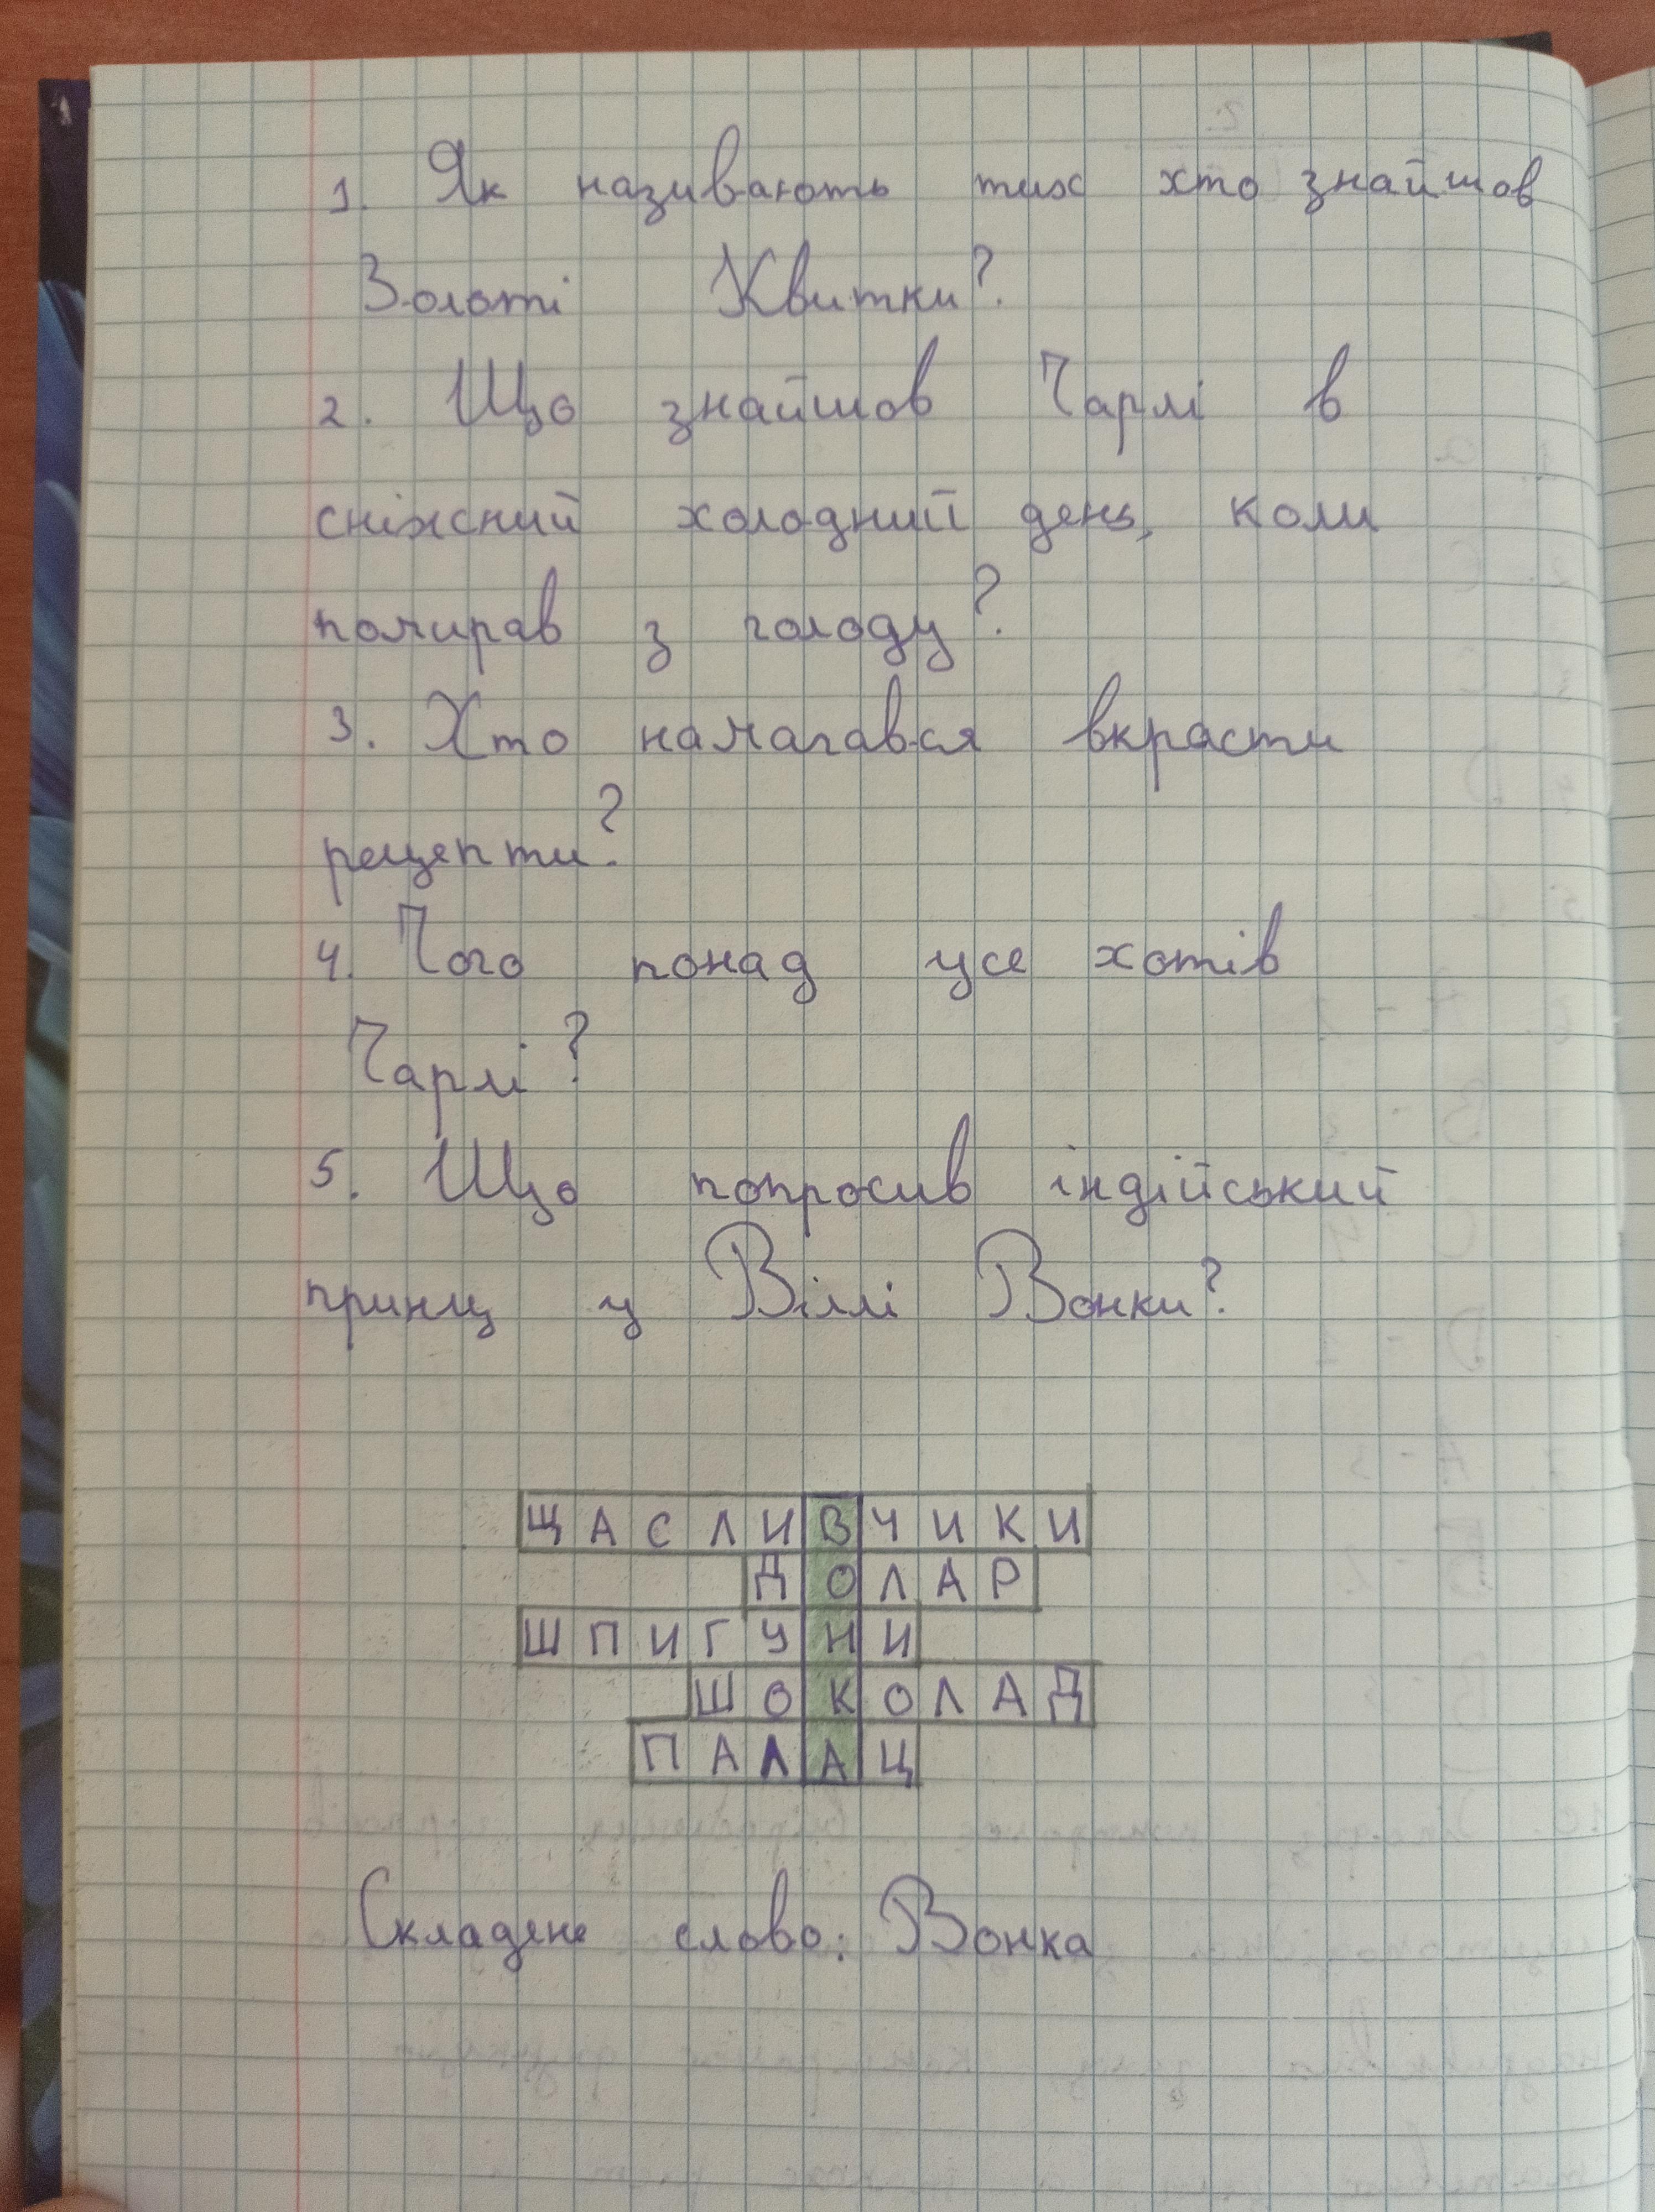 1. Як називають тих хто знайшов
Золоті Квитки?
2. Що знайшов Чарлі в
сніжний холодний день, коли
помирав з голоду?
3. Хто намагався вкрасти
рецепти?
4. Чого понад усе хотів
Чарлі?
5. Що попросив індійський
принц у Віллі Вонки?
ЩАСЛИВЧИКИ
ДОЛАР
ШПИГУНИ
ШОКОЛАД
ПАЛАЦ
Складене слово: Вонка